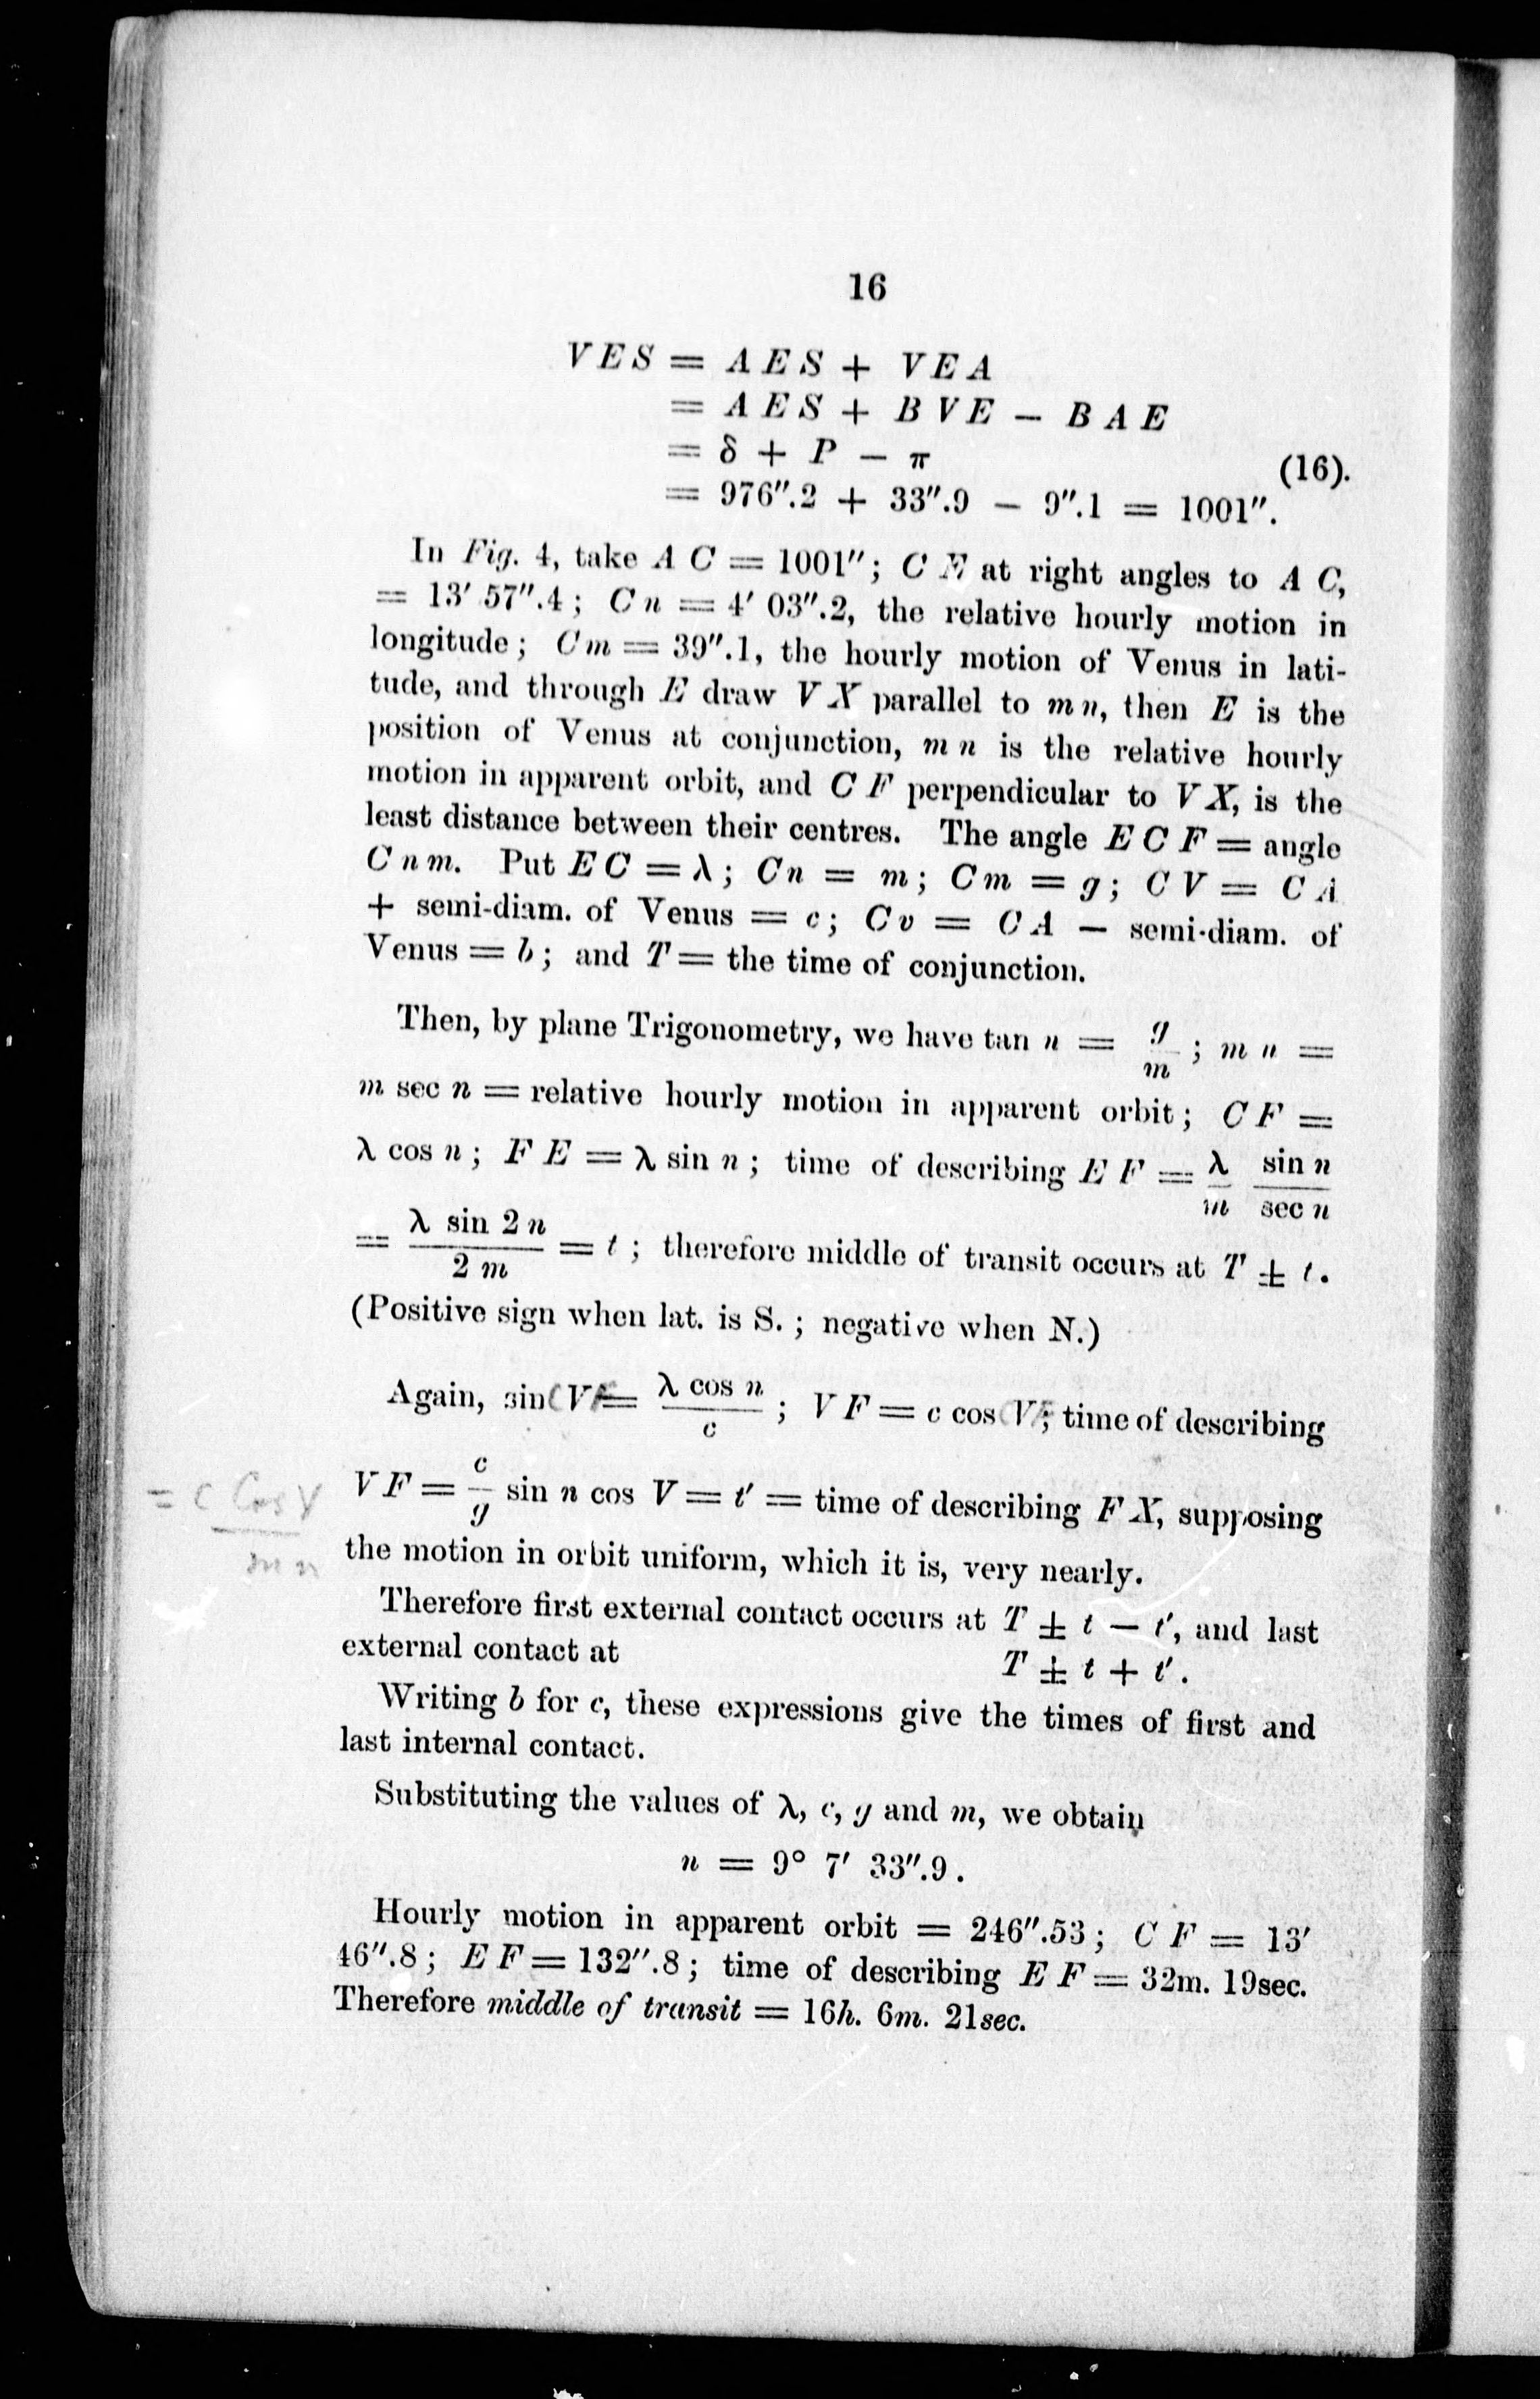 16
V E S = A E S + V E A
= A E S + B V E - B A E
= δ + P - π (16).
= 976″.2 + 33″.9 - 9″.1 = 1001″.
In Fig. 4, take A C = 1001″; C E at right angles to A C,
= 13′ 57″.4; C n = 4′ 03″.2, the relative hourly motion in
longitude; C m = 39″.1, the hourly motion of Venus in lati-
tude, and through E draw V X parallel to m n, then E is the
position of Venus at conjunction, m n is the relative hourly
motion in apparent orbit, and C F perpendicular to V X, is the
least distance between their centres. The angle E C F = angle
C n m. Put E C = λ; C n = m; C m = g; C V = C A
+ semi-diam. of Venus = c; C v = C A - semi-diam. of
Venus = b; and T = the time of conjunction.
Then, by plane Trigonometry, we have tan n = g/m; m n =
m sec n = relative hourly motion in apparent orbit; C F =
λ cos n; F E = λ sin n; time of describing E F = λ/m sin n/sec n
= λ sin 2 n/2 m = t; therefore middle of transit occurs at T ± t.
(Positive sign when lat. is S.; negative when N.)
Again, sin C V F = λ cos n/c; V F = c cos C V F; time of describing
V F = c/g sin n cos V = t′ = time of describing F X, supposing
= c Cos V/m n
the motion in orbit uniform, which it is, very nearly.
Therefore first external contact occurs at T ± t - t′, and last
external contact at T ± t + t′.
Writing b for c, these expressions give the times of first and
last internal contact.
Substituting the values of λ, c, g and m, we obtain
n = 9° 7′ 33″.9.
Hourly motion in apparent orbit = 246″.53; C F = 13′
46″.8; E F = 132″.8; time of describing E F = 32m. 19sec.
Therefore middle of transit = 16h. 6m. 21sec.